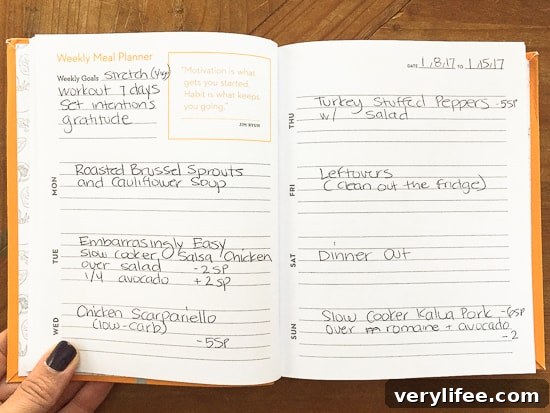 Weekly Meal Planner
Weekly Goals stretch
workout 7 days
set intentions
gratitude
"Motivation is what
gets you started.
Habit is what keeps
you going."
JIM RYUN
MON
Roasted Brussel Sprouts
and Cauliflower Soup
TUE
Embarrasingly Easy
Slow cooker Salsa Chicken
over salad -2SP
1/4 avocado +2SP
WED
Chicken Scarpariello
(low-carb)
-5SP
DATE 1,8,17 TO 1,15,17
THU
Turkey Stuffed Peppers -5SP
w/ Salad
FRI
Leftovers
(clean out the fridge)
SAT
Dinner Out
SUN
Slow Cooker Kalua Pork -6SP
over romaine + avocado
-2
verylifee.com